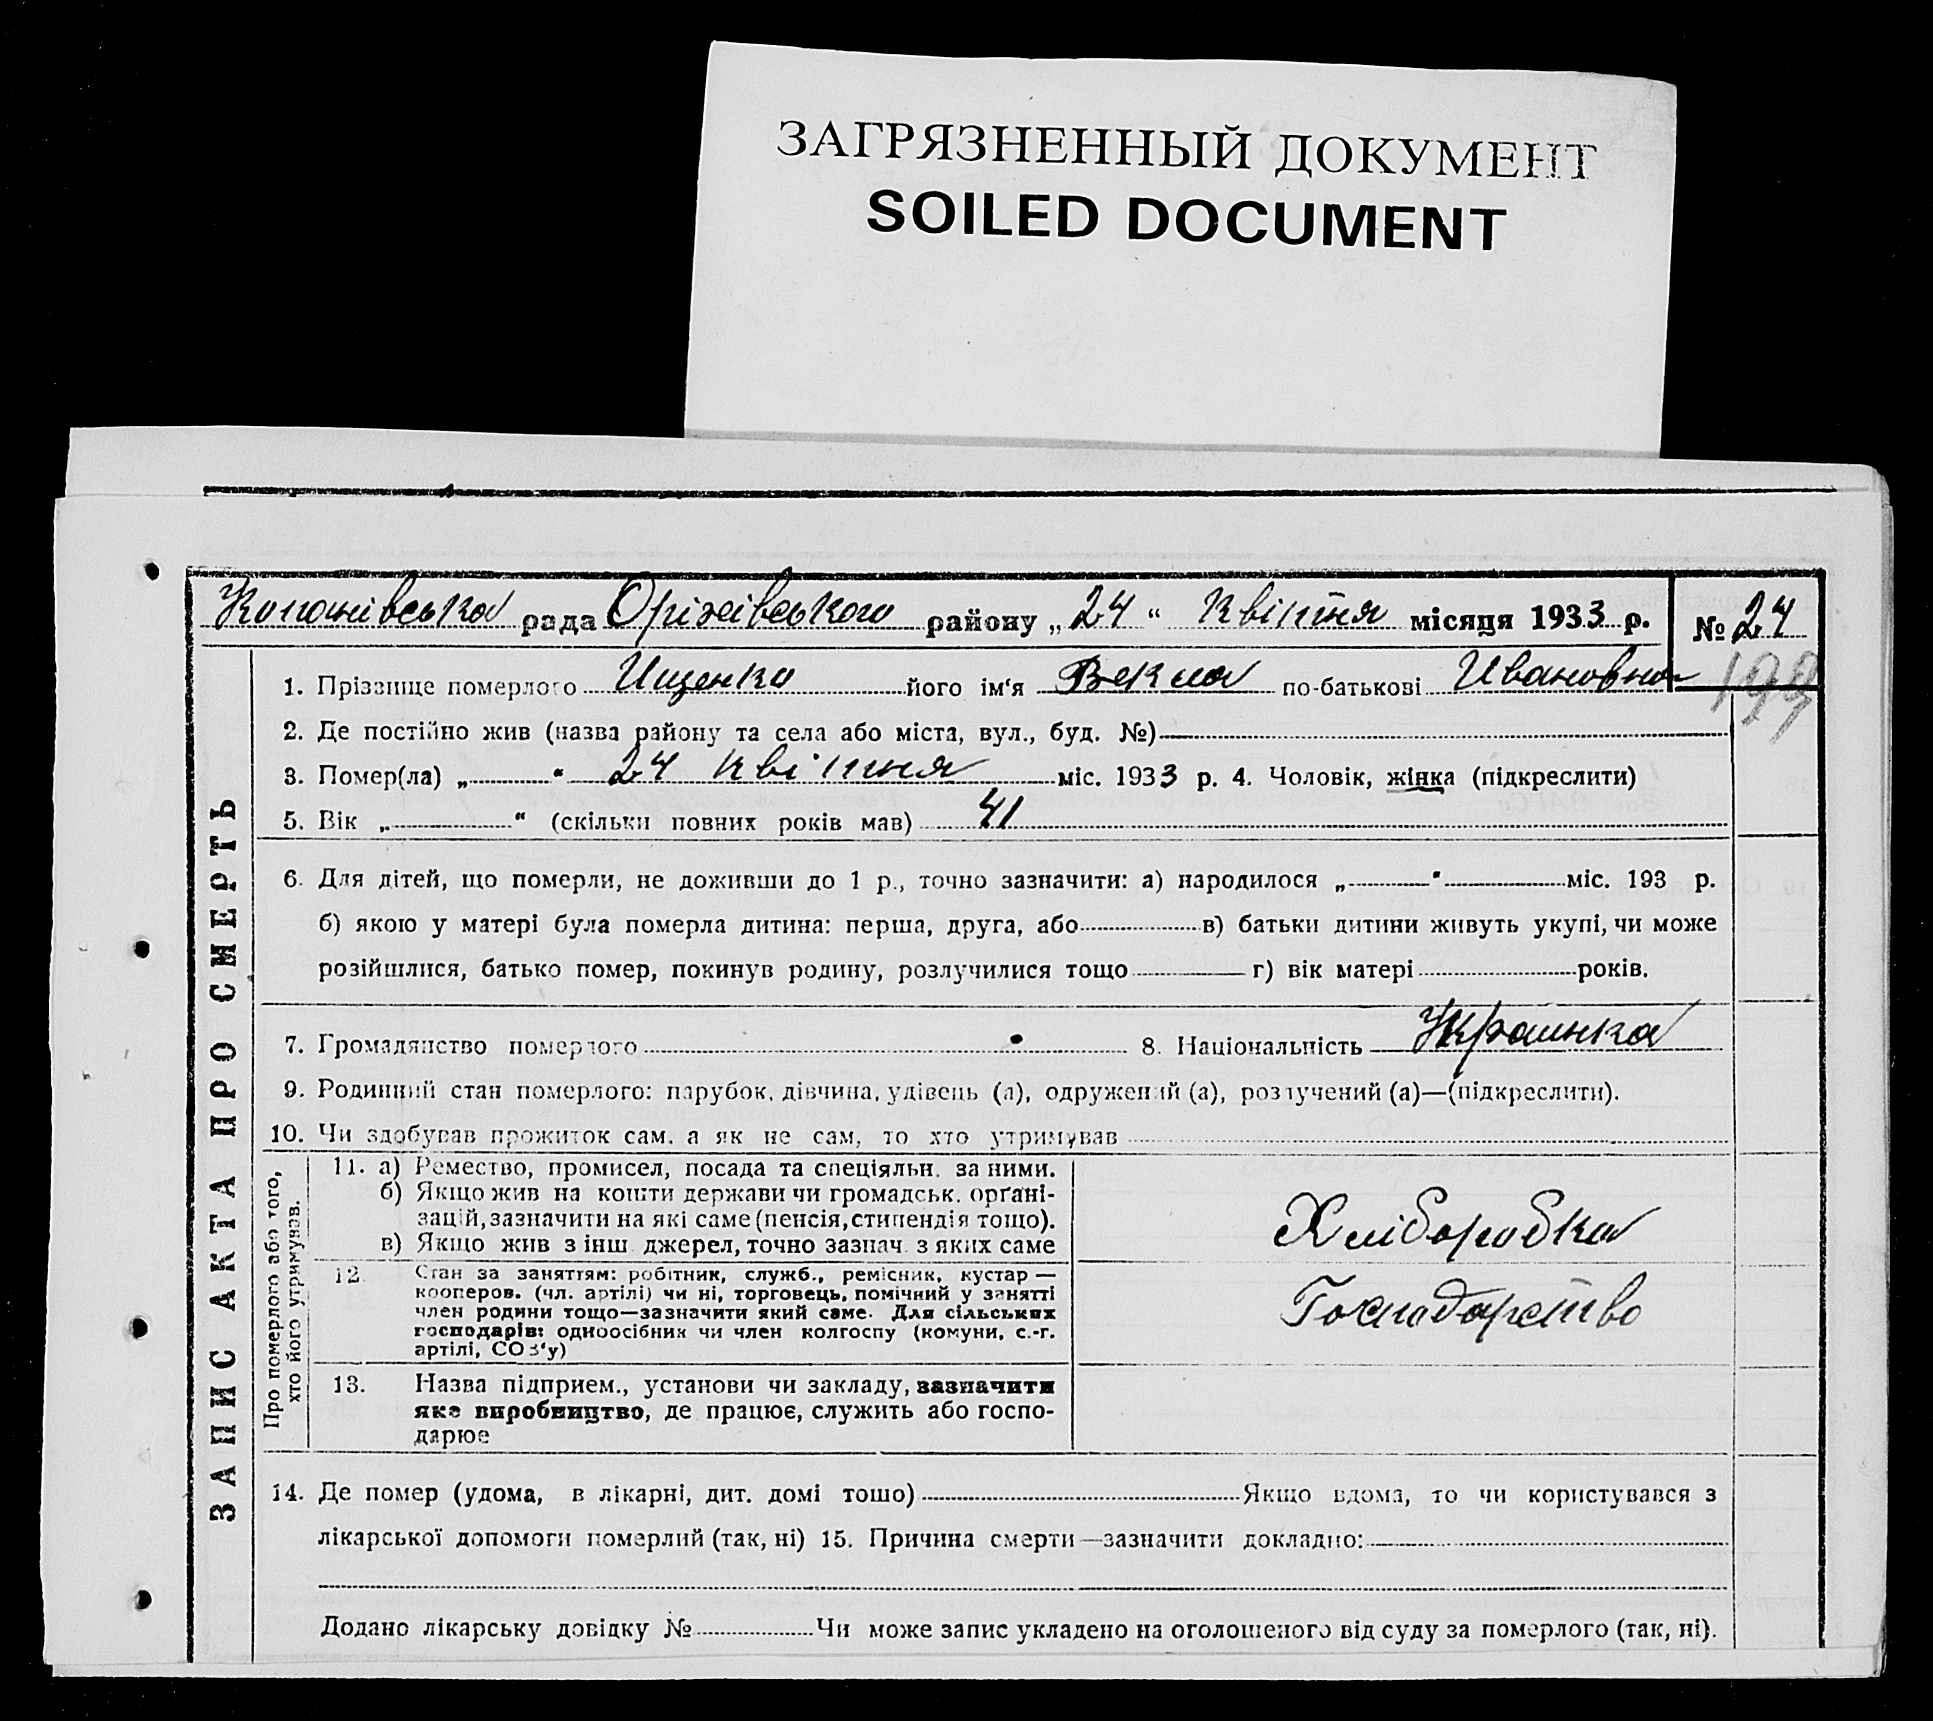 ЗАГРЯЗНЕННЫЙ ДОКУМЕНТ
SOILED DOCUMENT
Копанівська рада Оріхівського району „24“ Квітня місяця 1933 р. № 24
199
ЗАПИС АКТА ПРО СМЕРТЬ
1. Прізвище померлого Ищенко його ім‘я Векла по-батькові Ивановна
2. Де постійно жив (назва району та села або міста, вул., буд. №)
3. Помер(ла) „ “ 24 квітня міс. 1933 р. 4. Чоловік, жінка (підкреслити)
5. Вік „ “ (скільки повних років мав) 41
6. Для дітей, що померли, не доживши до 1 р., точно зазначити: а) народилося „ “ міс. 193 р.
б) якою у матері була померла дитина: перша, друга, або в) батьки дитини живуть укупі, чи може
розійшлися, батько помер, покинув родину, розлучилися тощо г) вік матері років.
7. Громадянство померлого 8. Національність Українка
9. Родинний стан померлого: парубок, дівчина, удівець (а), одружений (а), розлучений (а)—(підкреслити).
10. Чи здобував прожиток сам, а як не сам, то хто утримував
Про померлого або того,
хто його утримував.
11. а) Ремество, промисел, посада та спеціяльн. за ними.
б) Якщо жив на кошти держави чи громадськ. орґані-
зацій, зазначити на які саме (пенсія, стипендія тощо).
в) Якщо жив з інш. джерел, точно зазнач. з яких саме
Хліборобка
12. Стан за заняттям: робітник, служб., ремісник, кустар —
кооперов. (чл. артілі) чи ні, торговець, помічний у занятті
член родини тощо—зазначити який саме. Для сільських
господарів: одноосібник чи член колгоспу (комуни, с.-г.
артілі, СОЗ‘у)
Господарство
13. Назва підприєм., установи чи закладу, зазначити
яке виробництво, де працює, служить або госпо-
дарює
14. Де помер (удома, в лікарні, дит. домі тощо) Якщо вдома, то чи користувався з
лікарської допомоги померлий (так, ні) 15. Причина смерти—зазначити докладно:
Додано лікарську довідку № Чи може запис укладено на оголошеного від суду за померлого (так, ні).